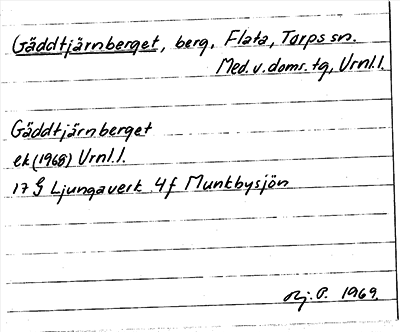 Gäddtjärnberget, berg, Flata, Torps sn.
Med. v. doms. tg, Urnl. l.
Gäddtjärnberget
ek (1968) Urnl. l.
17 G Ljungaverk 4f Munkbysjön
P. 1969.